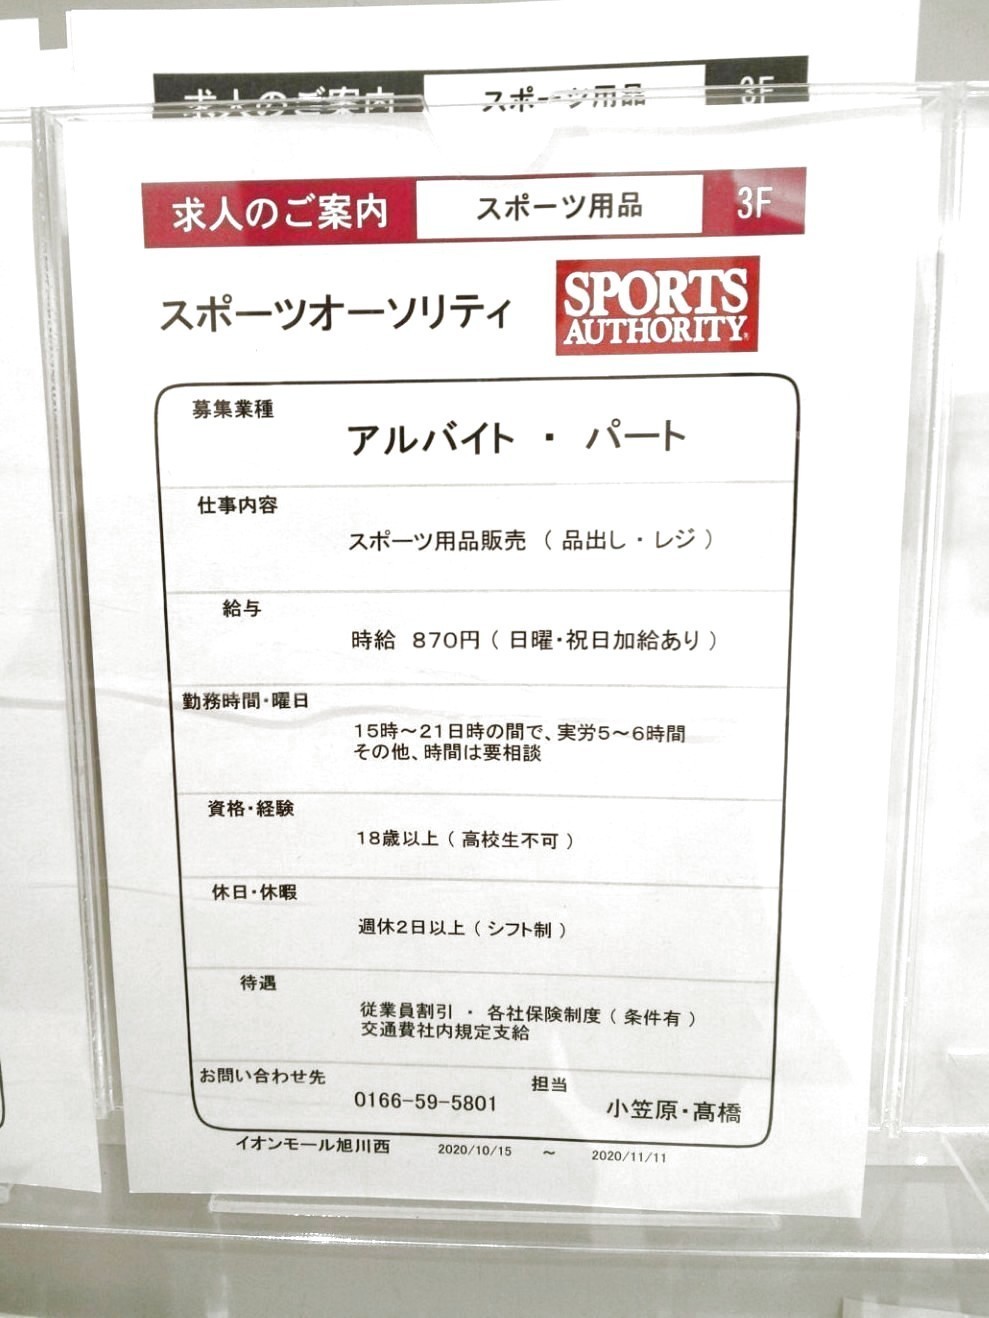 求人のご案内 スポーツ用品 3F
求人のご案内 スポーツ用品 3F
スポーツオーソリティ
SPORTS
AUTHORITY
募集業種
アルバイト ・ パート
仕事内容
スポーツ用品販売 （ 品出し・レジ ）
給与
時給 870円（ 日曜・祝日加給あり ）
勤務時間・曜日
15時～21日時の間で、実労5～6時間
その他、時間は要相談
資格・経験
18歳以上（ 高校生不可 ）
休日・休暇
週休2日以上（ シフト制 ）
待遇
従業員割引 ・ 各社保険制度（ 条件有 ）
交通費社内規定支給
お問い合わせ先 担当
0166-59-5801 小笠原・髙橋
イオンモール旭川西 2020/10/15 ～ 2020/11/11